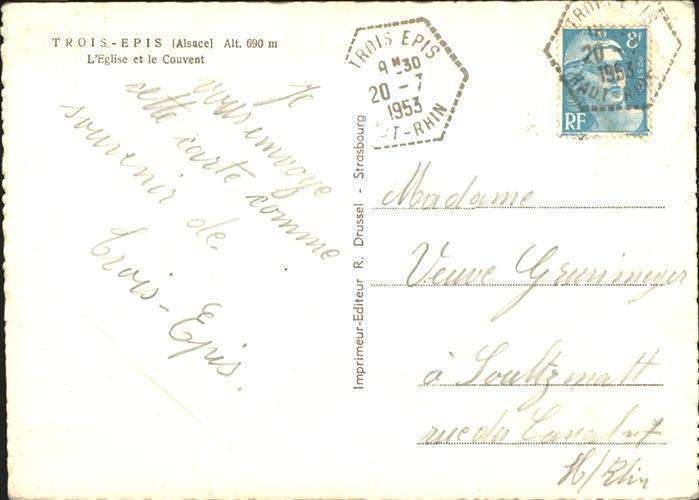 TROIS-EPIS (Alsace) Alt. 690 m
L'Eglise et le Couvent
Je
vous envoye
cette carte comme
souvenir de
Trois-Epis.
Imprimeur-Editeur R. Drussel - Strasbourg
TROIS EPIS
9H30
20 - 7
1953
HT-RHIN
TROIS EPIS
20
1953
HAUT-RHIN
8F
POSTES
RF
Madame
Veuve
à Soultzmatt
rue du
H/Rhin